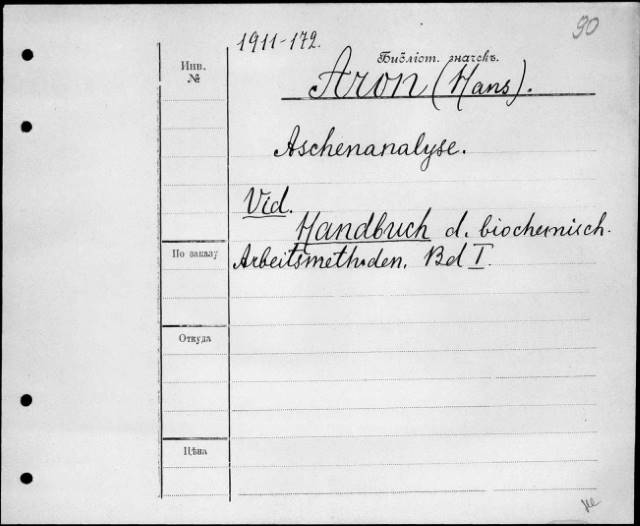 90
1911-172.
Инв.
№
Библіот. значекъ.
Aron (Hans).
Aschenanalyse.
Vid.
Handbuch d. biochemisch.
По заказу
Arbeitsmethoden. Bd I.
Откуда
Цѣна